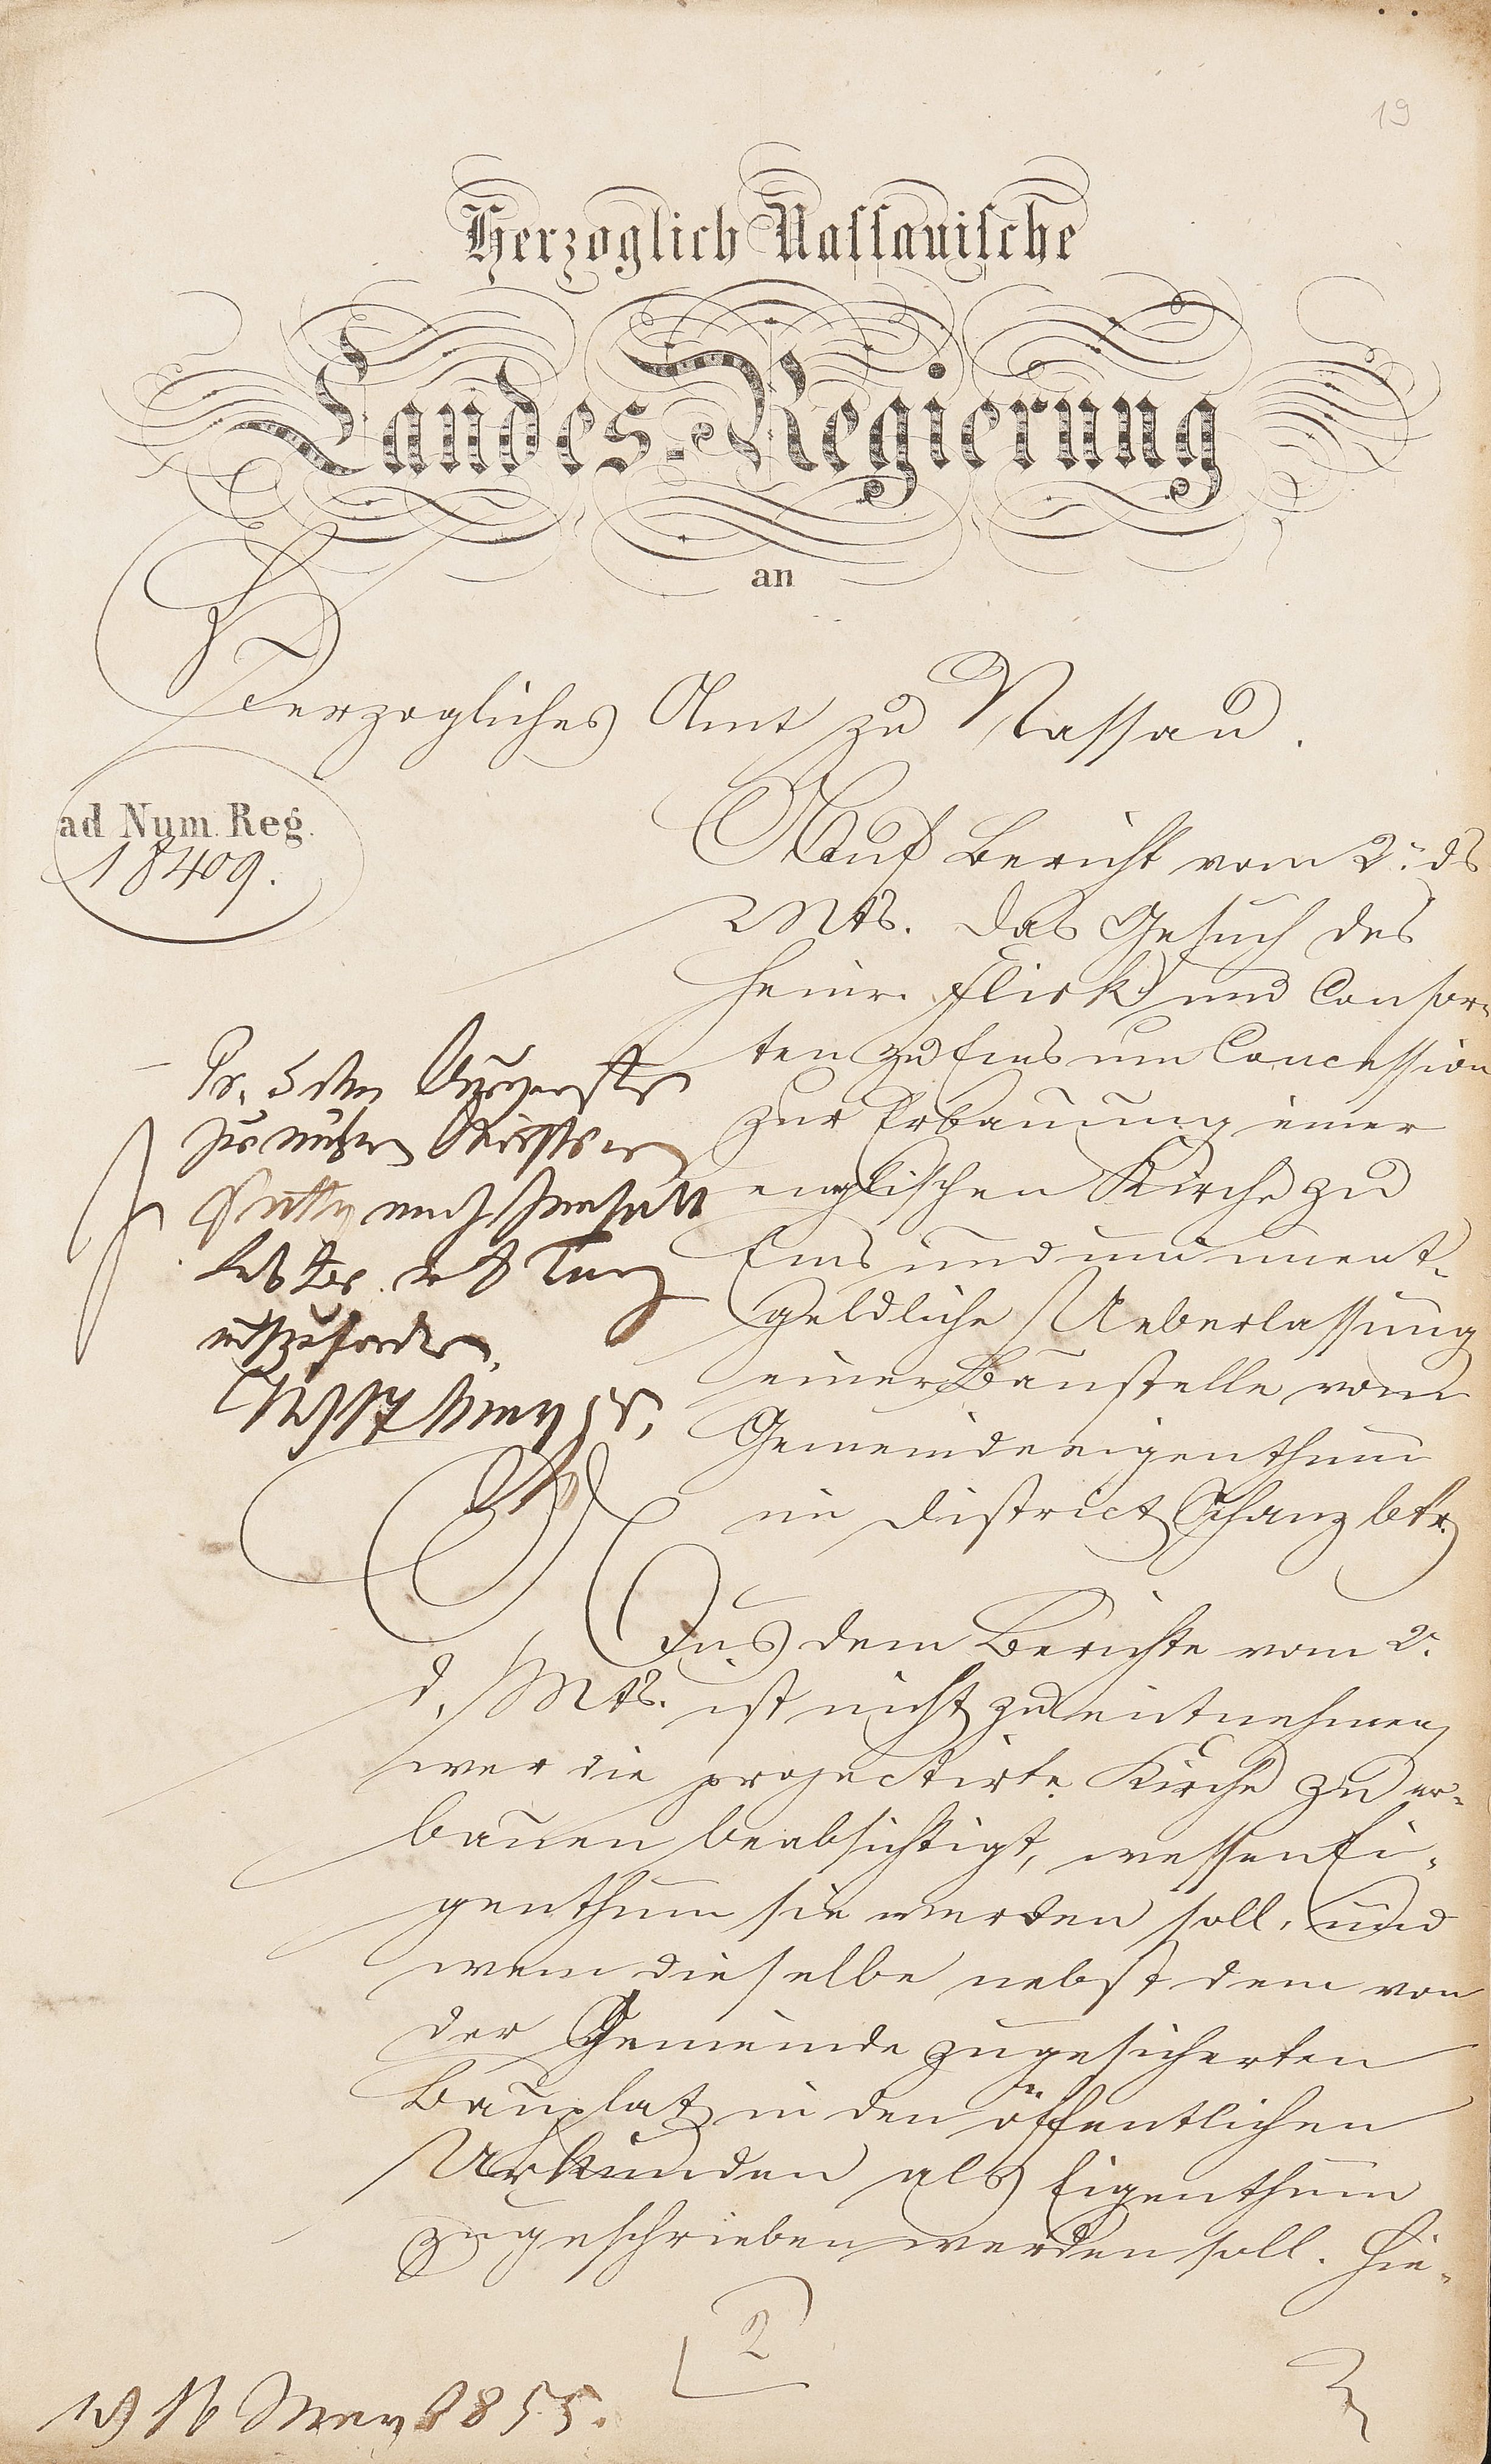 19
Herzoglich Nassauische
Landes-Regierung
an
Herzogliches Amt zu Nassau.
ad Num. Reg.
18409.
Auf Bericht vom 2. ds
Mts. das Gesuch des
Heinr. Flick und Consor-
ten zu Ems um Concession
zur Erbauung einer
englischen Kirche zu
Ems und um unent-
geldliche Ueberlassung
einer Baustelle vom
Gemeindeeigenthum
im District Schanz btr.
Aus dem Berichte vom 2.
d. Mts. ist nicht zu entnehmen,
wer die projectirte Kirche zu er-
bauen beabsichtigt, wessen Ei-
genthum sie werden soll, und
wem dieselbe nebst dem von
der Gemeinde zugesicherten
Bauplatz in den öffentlichen
Urkunden als Eigenthum
zugeschrieben werden soll. Hie-
2
16 May 1855.